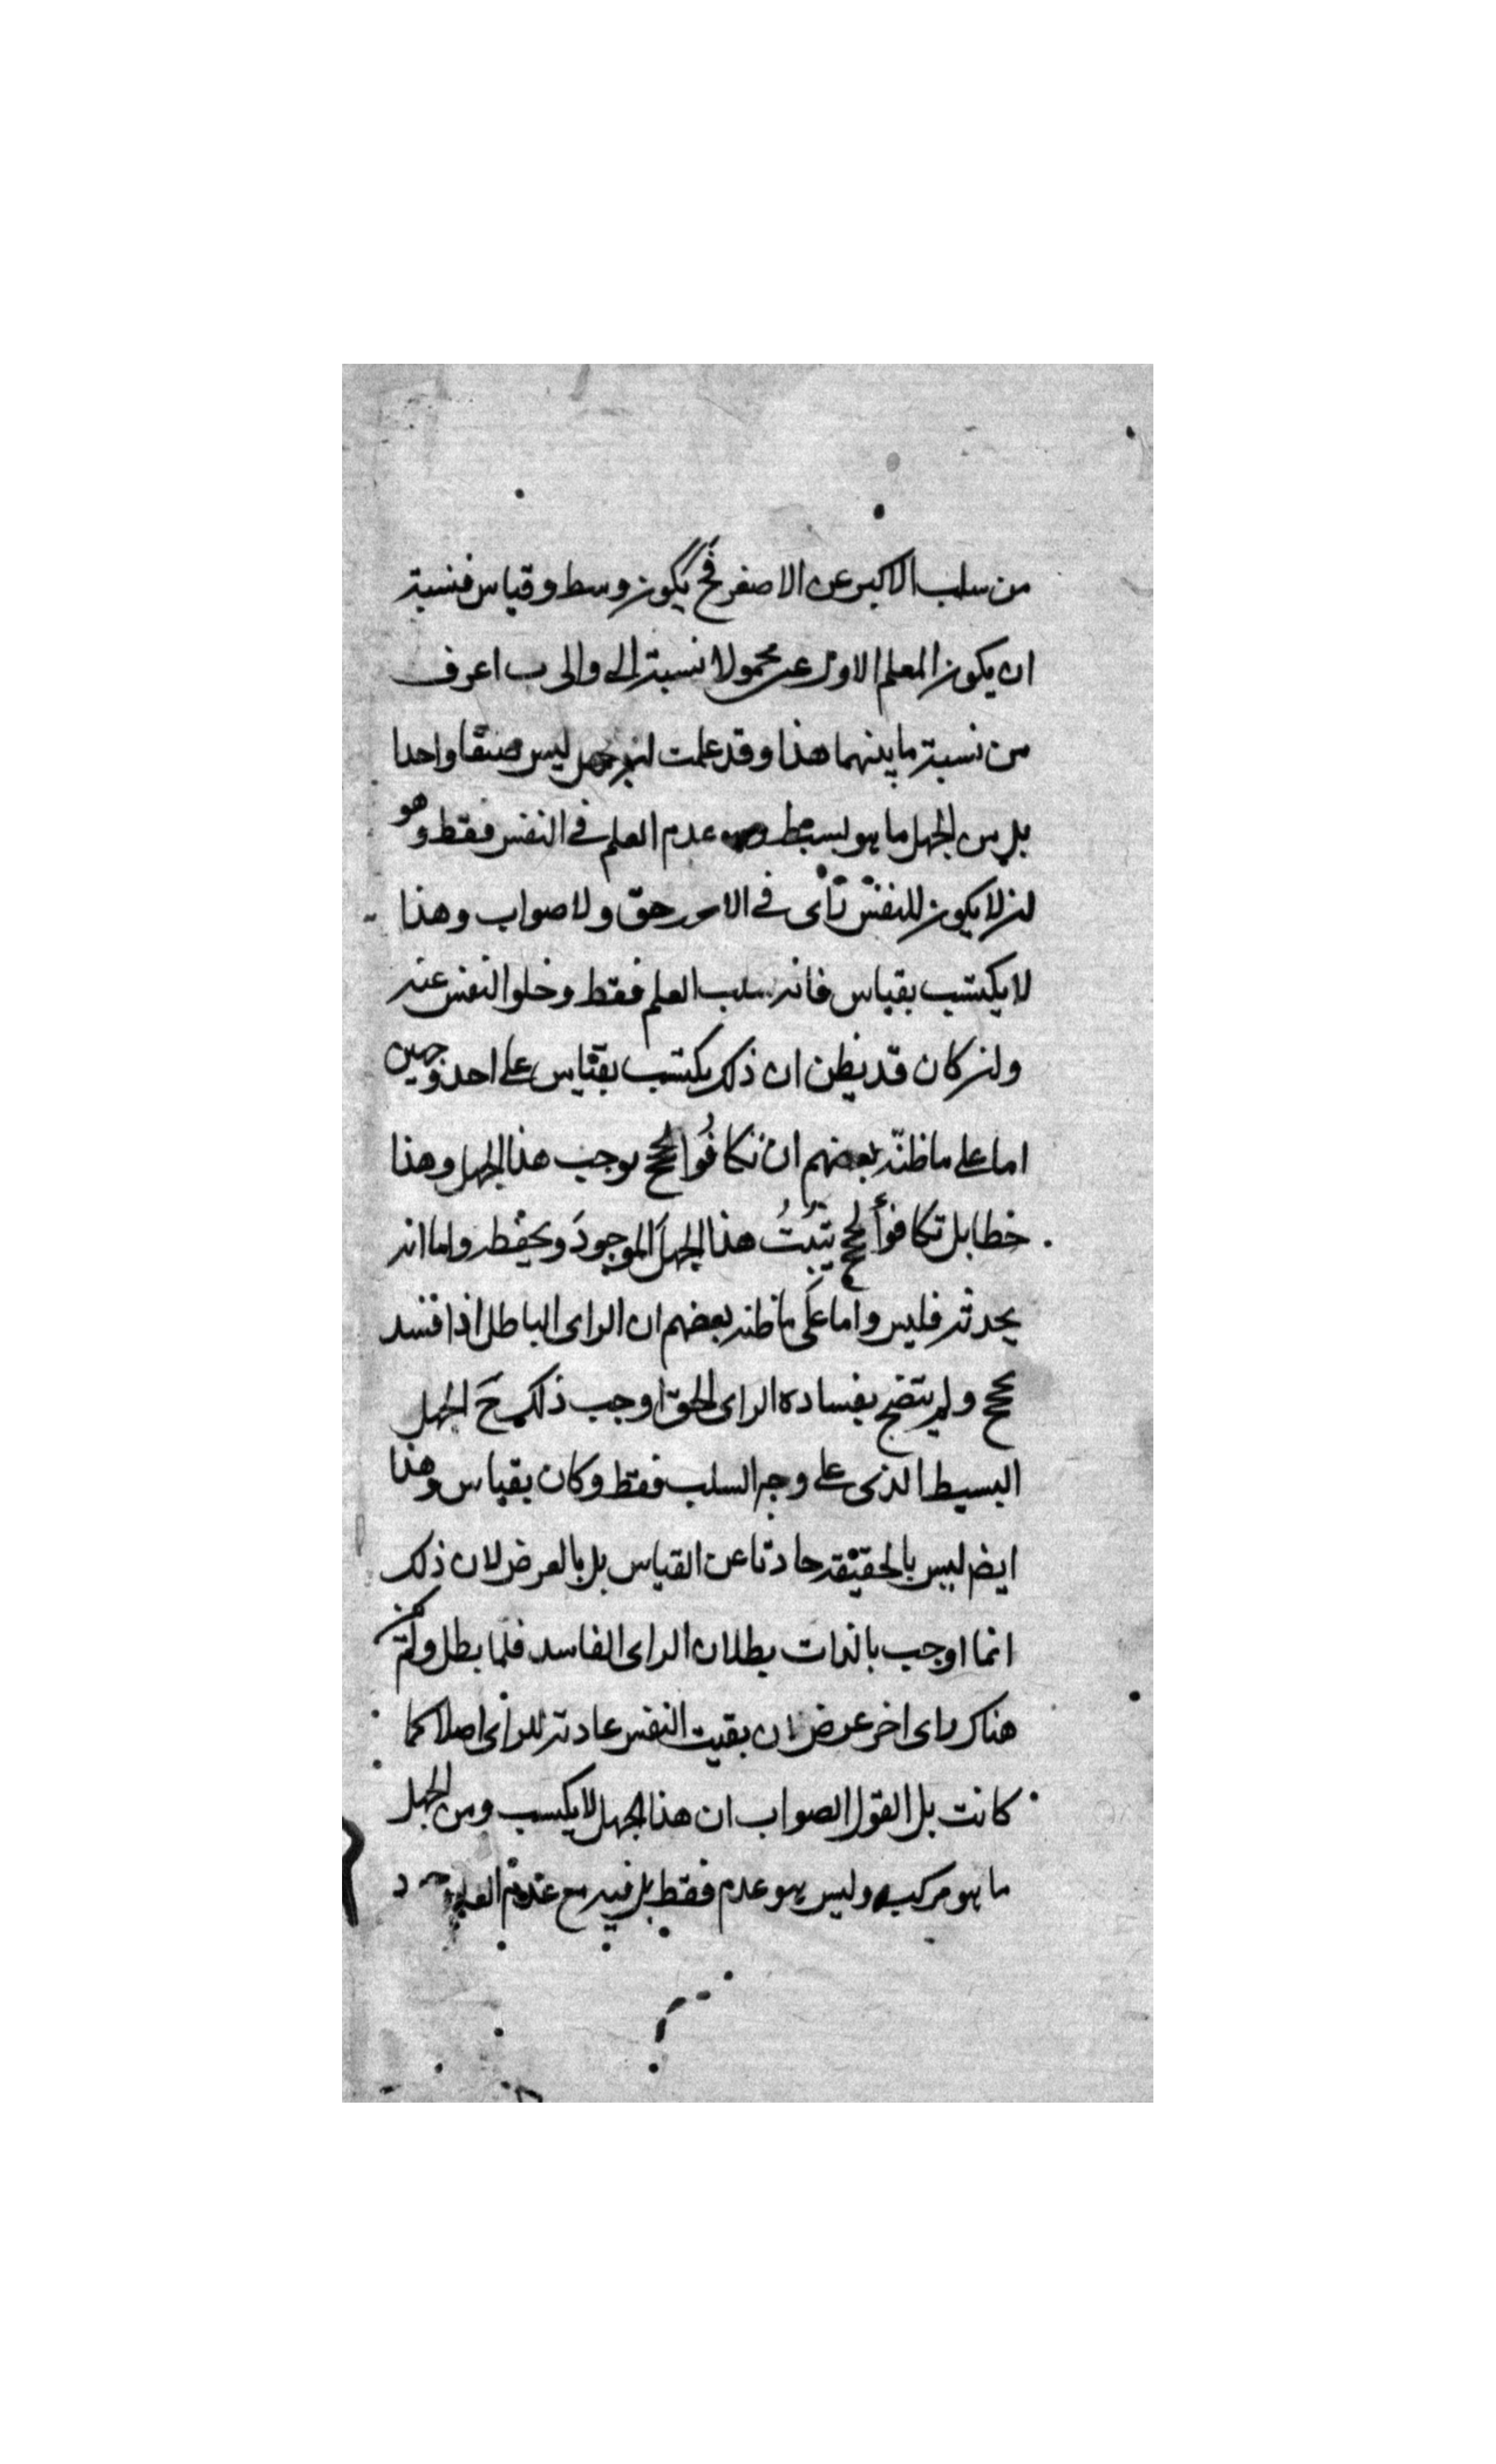 من سلب الاكبر عن الاصغر فح يكون وسط وقياس فنسبة
ان يكون المعلم الاول عن محمولا نسبته الى والى ب اعرف
من نسبة ما بينهما هذا وقد علمت ان الجهل ليس صنفا واحدا
بل من الجهل ما هو بسيط وهو عدم العلم فى النفس فقط وهو
ان لا يكون للنفس رأى فى الامور حق ولا صواب وهذا
لا يكتسب بقياس فانه سلب العلم فقط وخلو النفس عنه
وان كان قد يظن ان ذلك يكتسب بقياس على احد وجهين
اما على ما ظنّه بعضهم ان تكافُوا لحجج يوجب هذا الجهل وهذا
خطا بل تكافوأ لحجج يثبتُ هذا الجهلَ الموجودَ ويحفظه واما انه
يحدثه فليس واما على ما ظنه بعضهم ان الراى الباطل اذا فسد
بحجج ولم يتضح بفساده الراى الحق اوجب ذلك حَ الجهل
البسيط الذى على وجه السلب فقط وكان بقياس وهذا
ايضا ليس بالحقيقة حادثا عن القياس بل بالعرض لان ذلك
انما اوجب بالذات بطلان الراى الفاسد فلما بطل ولم يكن
هناك راى اخر عرض ان بقيت النفس عادمة للراى اصلا كما
كانت بل القول الصواب ان هذا الجهل لا يكتسب ومن الجهل
ما هو مركب وليس هو عدم فقط بل فيه مع عدم العلم وجود